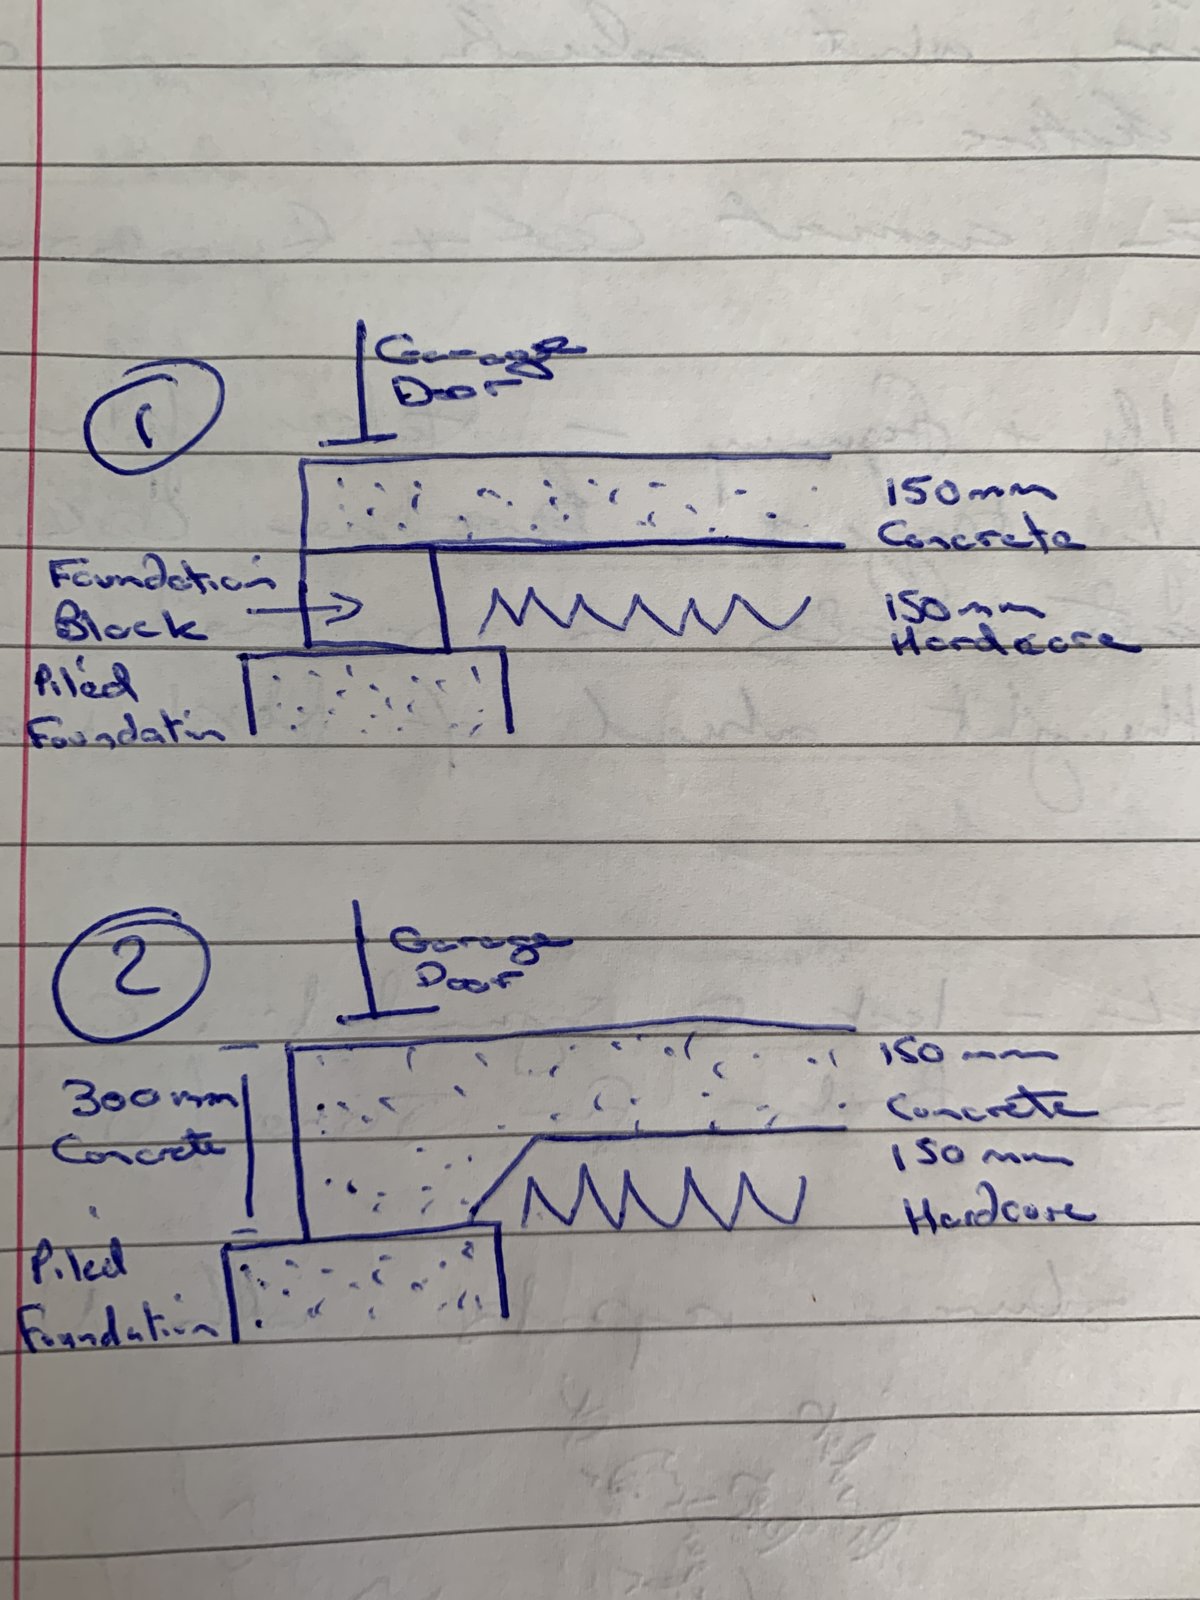 1
Garage
Door
150mm
Concrete
Foundation
Block
150mm
Hardcore
Piled
Foundatin
2
Garage
Door
300mm
Concrete
150mm
Concrete
150mm
Hardcore
Piled
Foundation